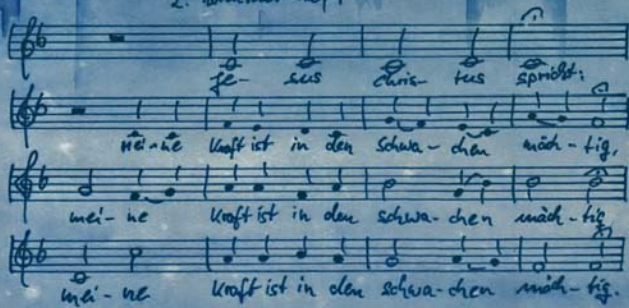 Je- sus Chris- tus spricht:
Mei- ne Kraft ist in den Schwa- chen mäch- tig,
mei- ne Kraft ist in den schwa- chen mäch- tig
mei- ne Kraft ist in den schwa- chen mäch- tig.